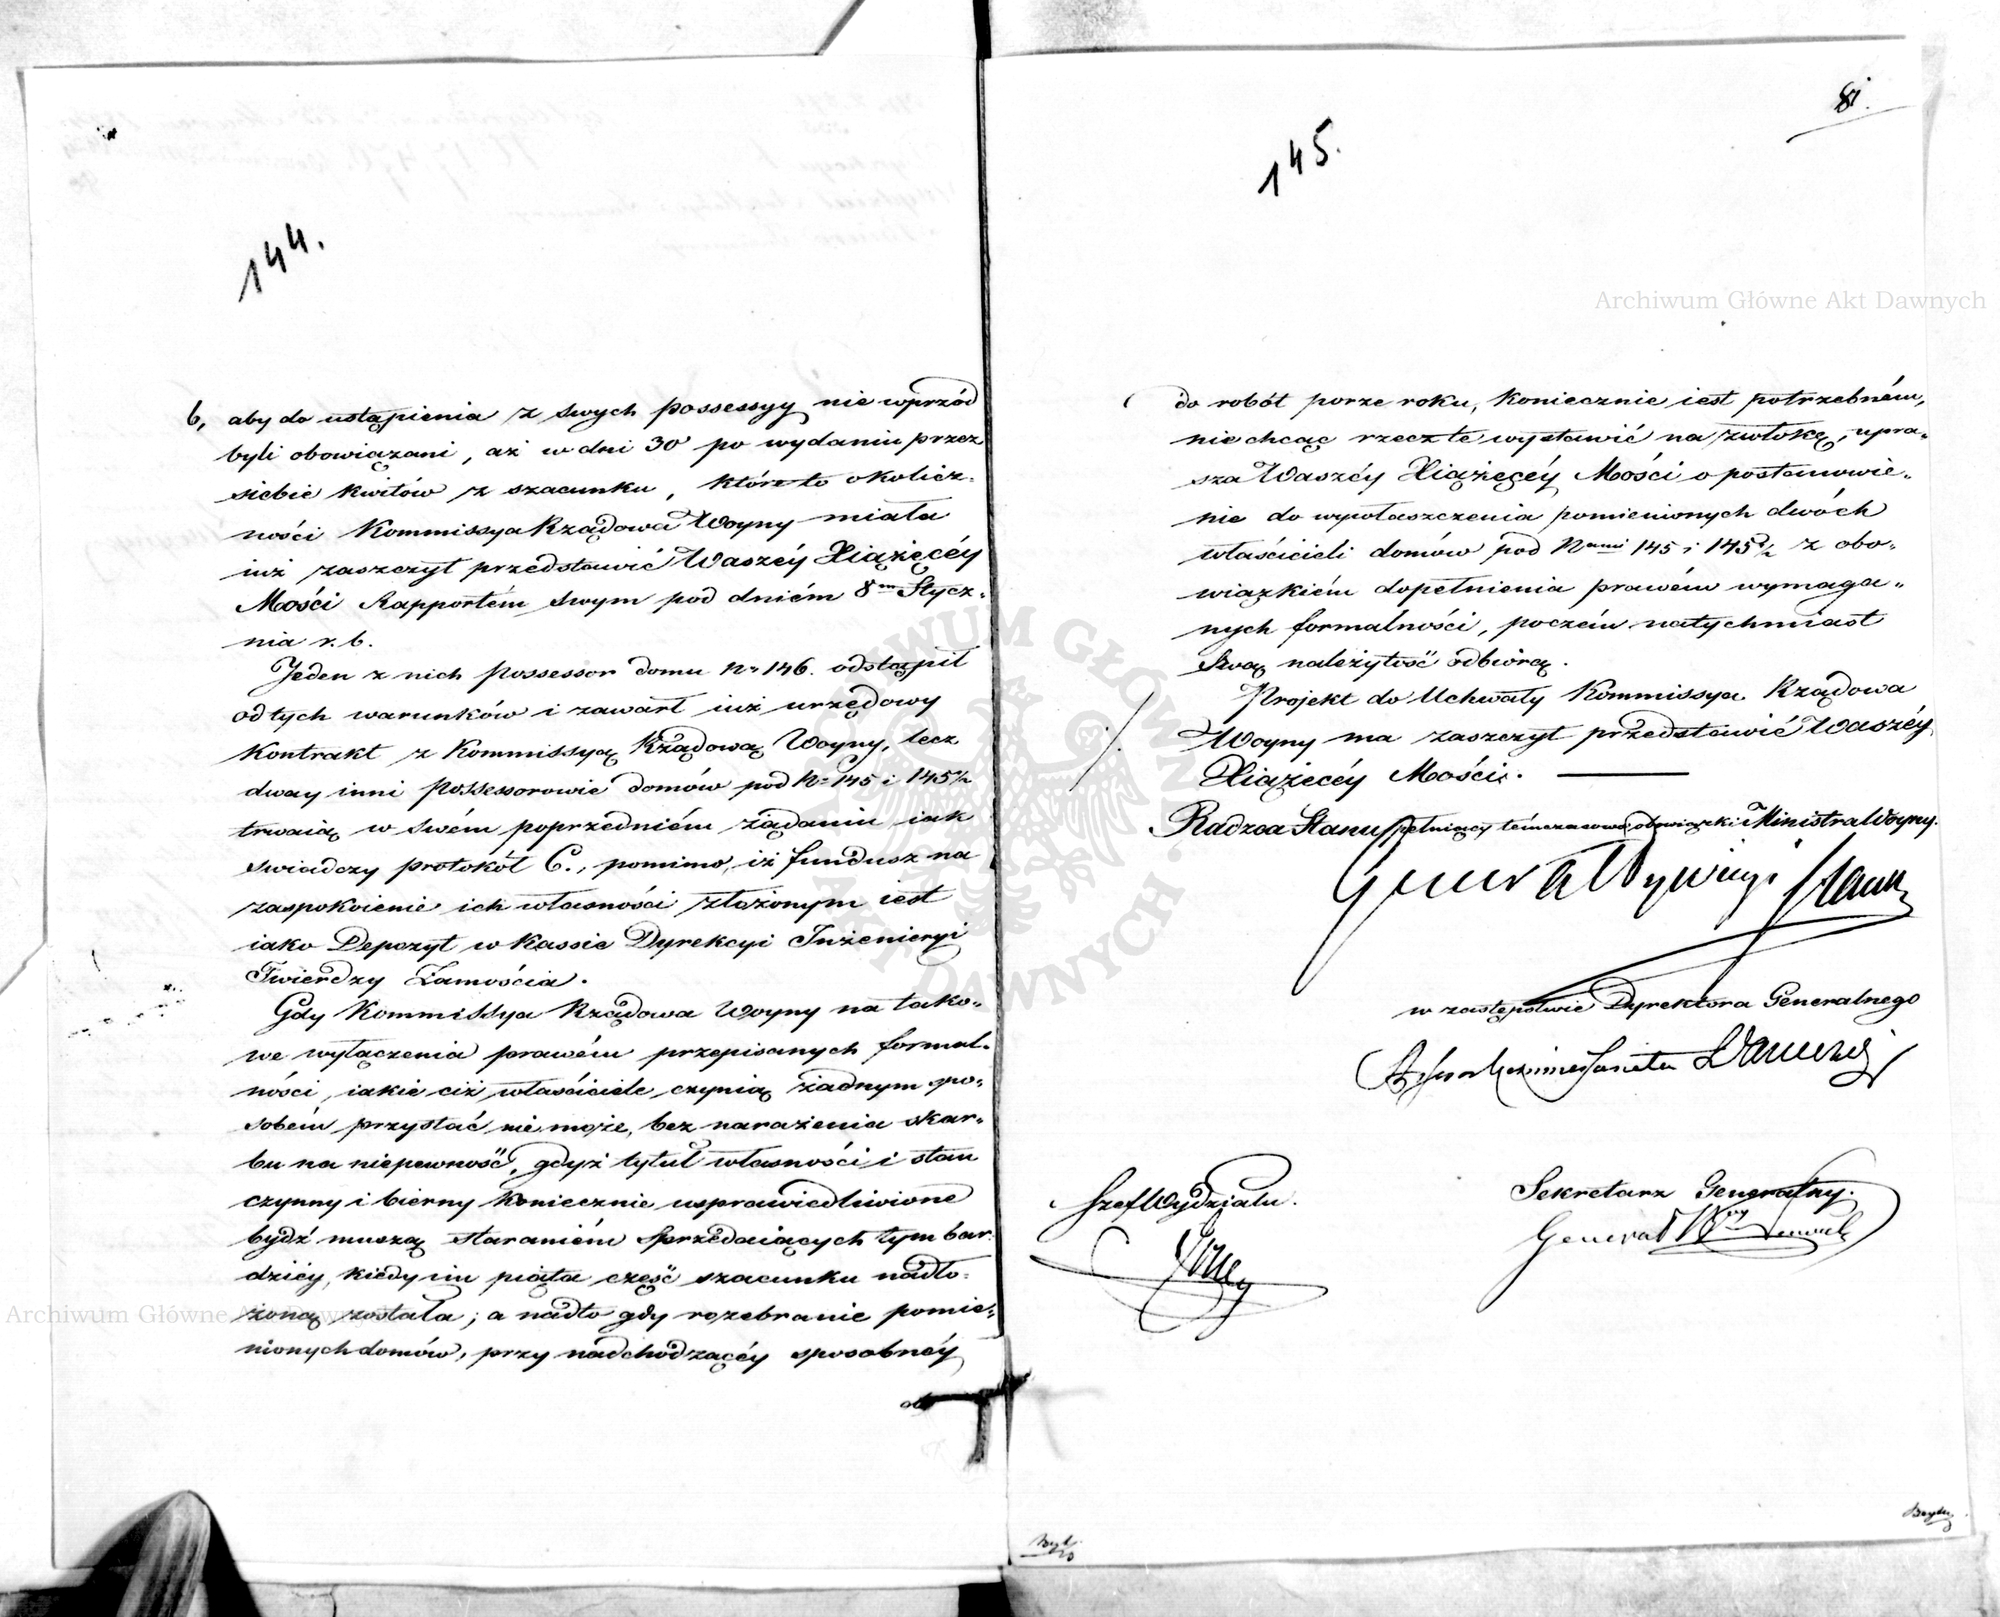 144.
b, aby do ustąpienia z swych possessyy nie wprzód
byli obowiązani, aż w dni 30 po wydaniu przez
siebie kwitów z szacunku, które to okolicz-
ności Kommissya Rządowa Woyny miała
iuż zaszczyt przedstawić Waszéy Xiążęcéy
Mości Rapportém swym pod dniém 8m Stycz-
nia r. b.
Jeden z nich possessor domu No 146. odstąpił
od tych warunków i zawarł iuż urzędowy
kontrakt z Kommissyą Rządową Woyny, lecz
dway inni possessorowie domów pod No 145 i 145½
trwaią w swém poprzedniém żądaniu iak
swiadczy protokół C., pomimo, iż fundusz na
zaspokoienie ich własności złożonym iest
iako Depozyt w Kassie Dyrekcyi Inżenieryi
Twierdzy Zamościa.
Gdy Kommissya Rządowa Woyny na tako-
we wyłączenia prawém przepisanych formal-
ności, iakie ciż właściciele czynią żadnym spo-
sobém przystać nie może, bez narażenia skar-
bu na niepewność, gdyż tytuł własności i stan
czynny i bierny koniecznie usprawiedliwione
bydź muszą staraniém sprzedaiących tym bar-
dziéy, kiedy im piąta część szacunku nadło-
żoną została; a nadto gdy rozebranie pomie-
nionych domów, przy nadchodzącéy sposobnéy
81.
145.
do robót porze roku, koniecznie iest potrzebném,
nie chcąc rzecz tę wystawić na zwłokę, upra-
sza Waszéy Xiążęcéy Mości o postanowie-
nie do wywłaszczenia pomienionych dwóch
właścicieli domów pod Nami 145 i 145½ z obo-
wiązkiém dopełnienia prawém wymaga-
nych formalności, poczém natychmiast
swą należytość odbiorą.
Projekt do Uchwały Kommissya Rządowa
Woyny ma zaszczyt przedstawić Waszéy
Xiążęcéy Mości.
Radzca Stanu pełniący tymczasowo obowiązki Ministra Woyny.
Generał Dywizyi
w zastępstwie Dyrektora Generalnego
Szef Wydziału.
Sekretarz Generalny.
Generał
Archiwum Główne Akt Dawnych
Archiwum Główne Akt Dawnych
ARCHIWUM GŁÓWNE AKT DAWNYCH